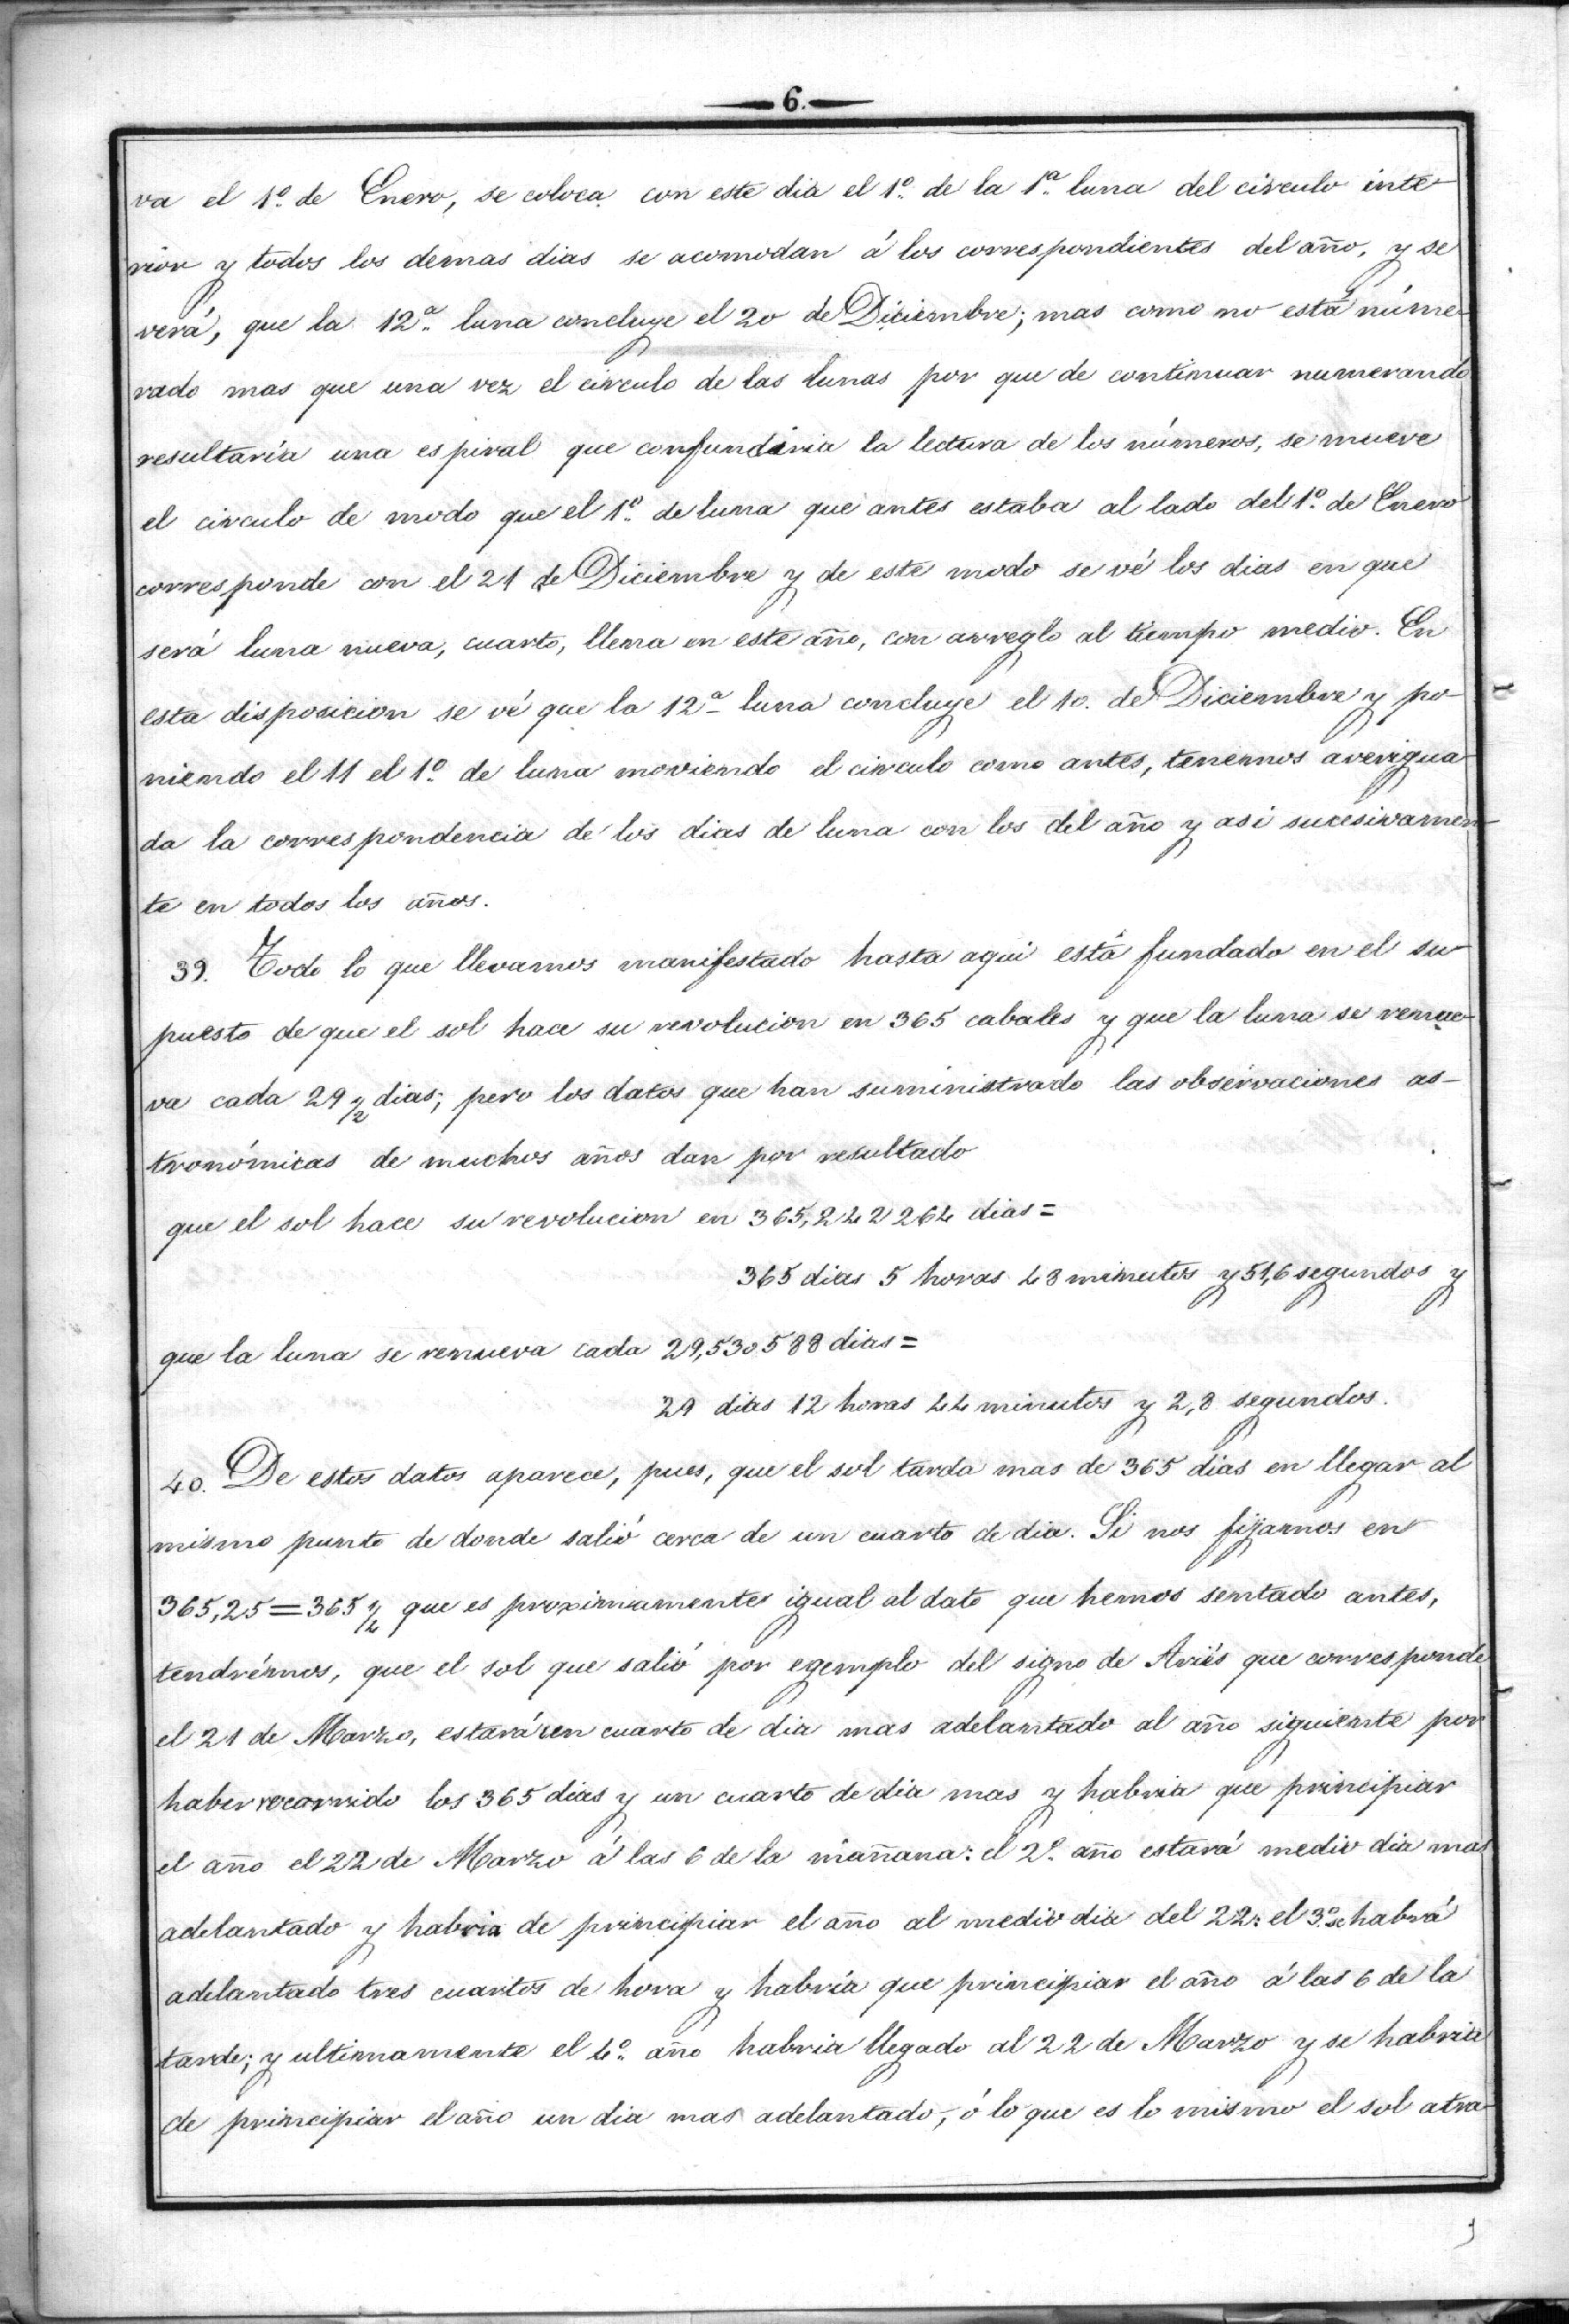 6.
va el 1º de Enero, se coloca con este dia el 1º de la 1ª luna del circulo inte-
rior y todos los demas dias se acomodan á los correspondientes del año, y se
verá, que la 12ª luna concluye el 20 de Diciembre; mas como no está núme-
rado mas que una vez el circulo de las lunas por que de continuar numerando
resultaría una espiral que confundiria la lectura de los números, se mueve
el circulo de modo que el 1º de luna que antes estaba al lado del 1º de Enero
corresponde con el 21 de Diciembre y de este modo se vé los dias en que
será luna nueva, cuarto, llena en este año, con arreglo al tiempo medio. En
esta disposicion se vé que la 12ª luna concluye el 10. de Diciembre y po-
niendo el 11 el 1º de luna moviendo el circulo como antes, tenemos averigua-
da la correspondencia de los dias de luna con los del año y asi sucesivamen-
te en todos los años.
39. Todo lo que llevamos manifestado hasta aqui está fundado en el su-
puesto de que el sol hace su revolucion en 365 cabales y que la luna se renue-
va cada 29 ½ dias; pero los datos que han suministrado las observaciones as-
tronómicas de muchos años dan por resultado
que el sol hace su revolucion en 365,242264 dias =
365 dias 5 horas 48 minutos y 51,6 segundos y
que la luna se renueva cada 29,530588 dias =
29 dias 12 horas 44 minutos y 2,8 segundos.
40. De estos datos aparece, pues, que el sol tarda mas de 365 dias en llegar al
mismo punto de donde salió cerca de un cuarto de dia. Si nos fijamos en
365,25 = 365 ¼ que es proximamente igual al dato que hemos sentado antes,
tendrémos, que el sol que salió por egemplo del signo de Ariés que corresponde
el 21 de Marzo, estará un cuarto de dia mas adelantado al año siguiente por
haber recorrido los 365 dias y un cuarto de dia mas y habria que principiar
el año el 22 de Marzo á las 6 de la mañana: el 2º año estará medio dia mas
adelantado y habria de principiar el año al medio dia del 22: el 3º se habrá
adelantado tres cuartos de hora y habría que principiar el año á las 6 de la
tarde; y ultimamente el 4º año habria llegado al 22 de Marzo y se habria
de principiar el año un dia mas adelantado, ó lo que es lo mismo el sol atra-